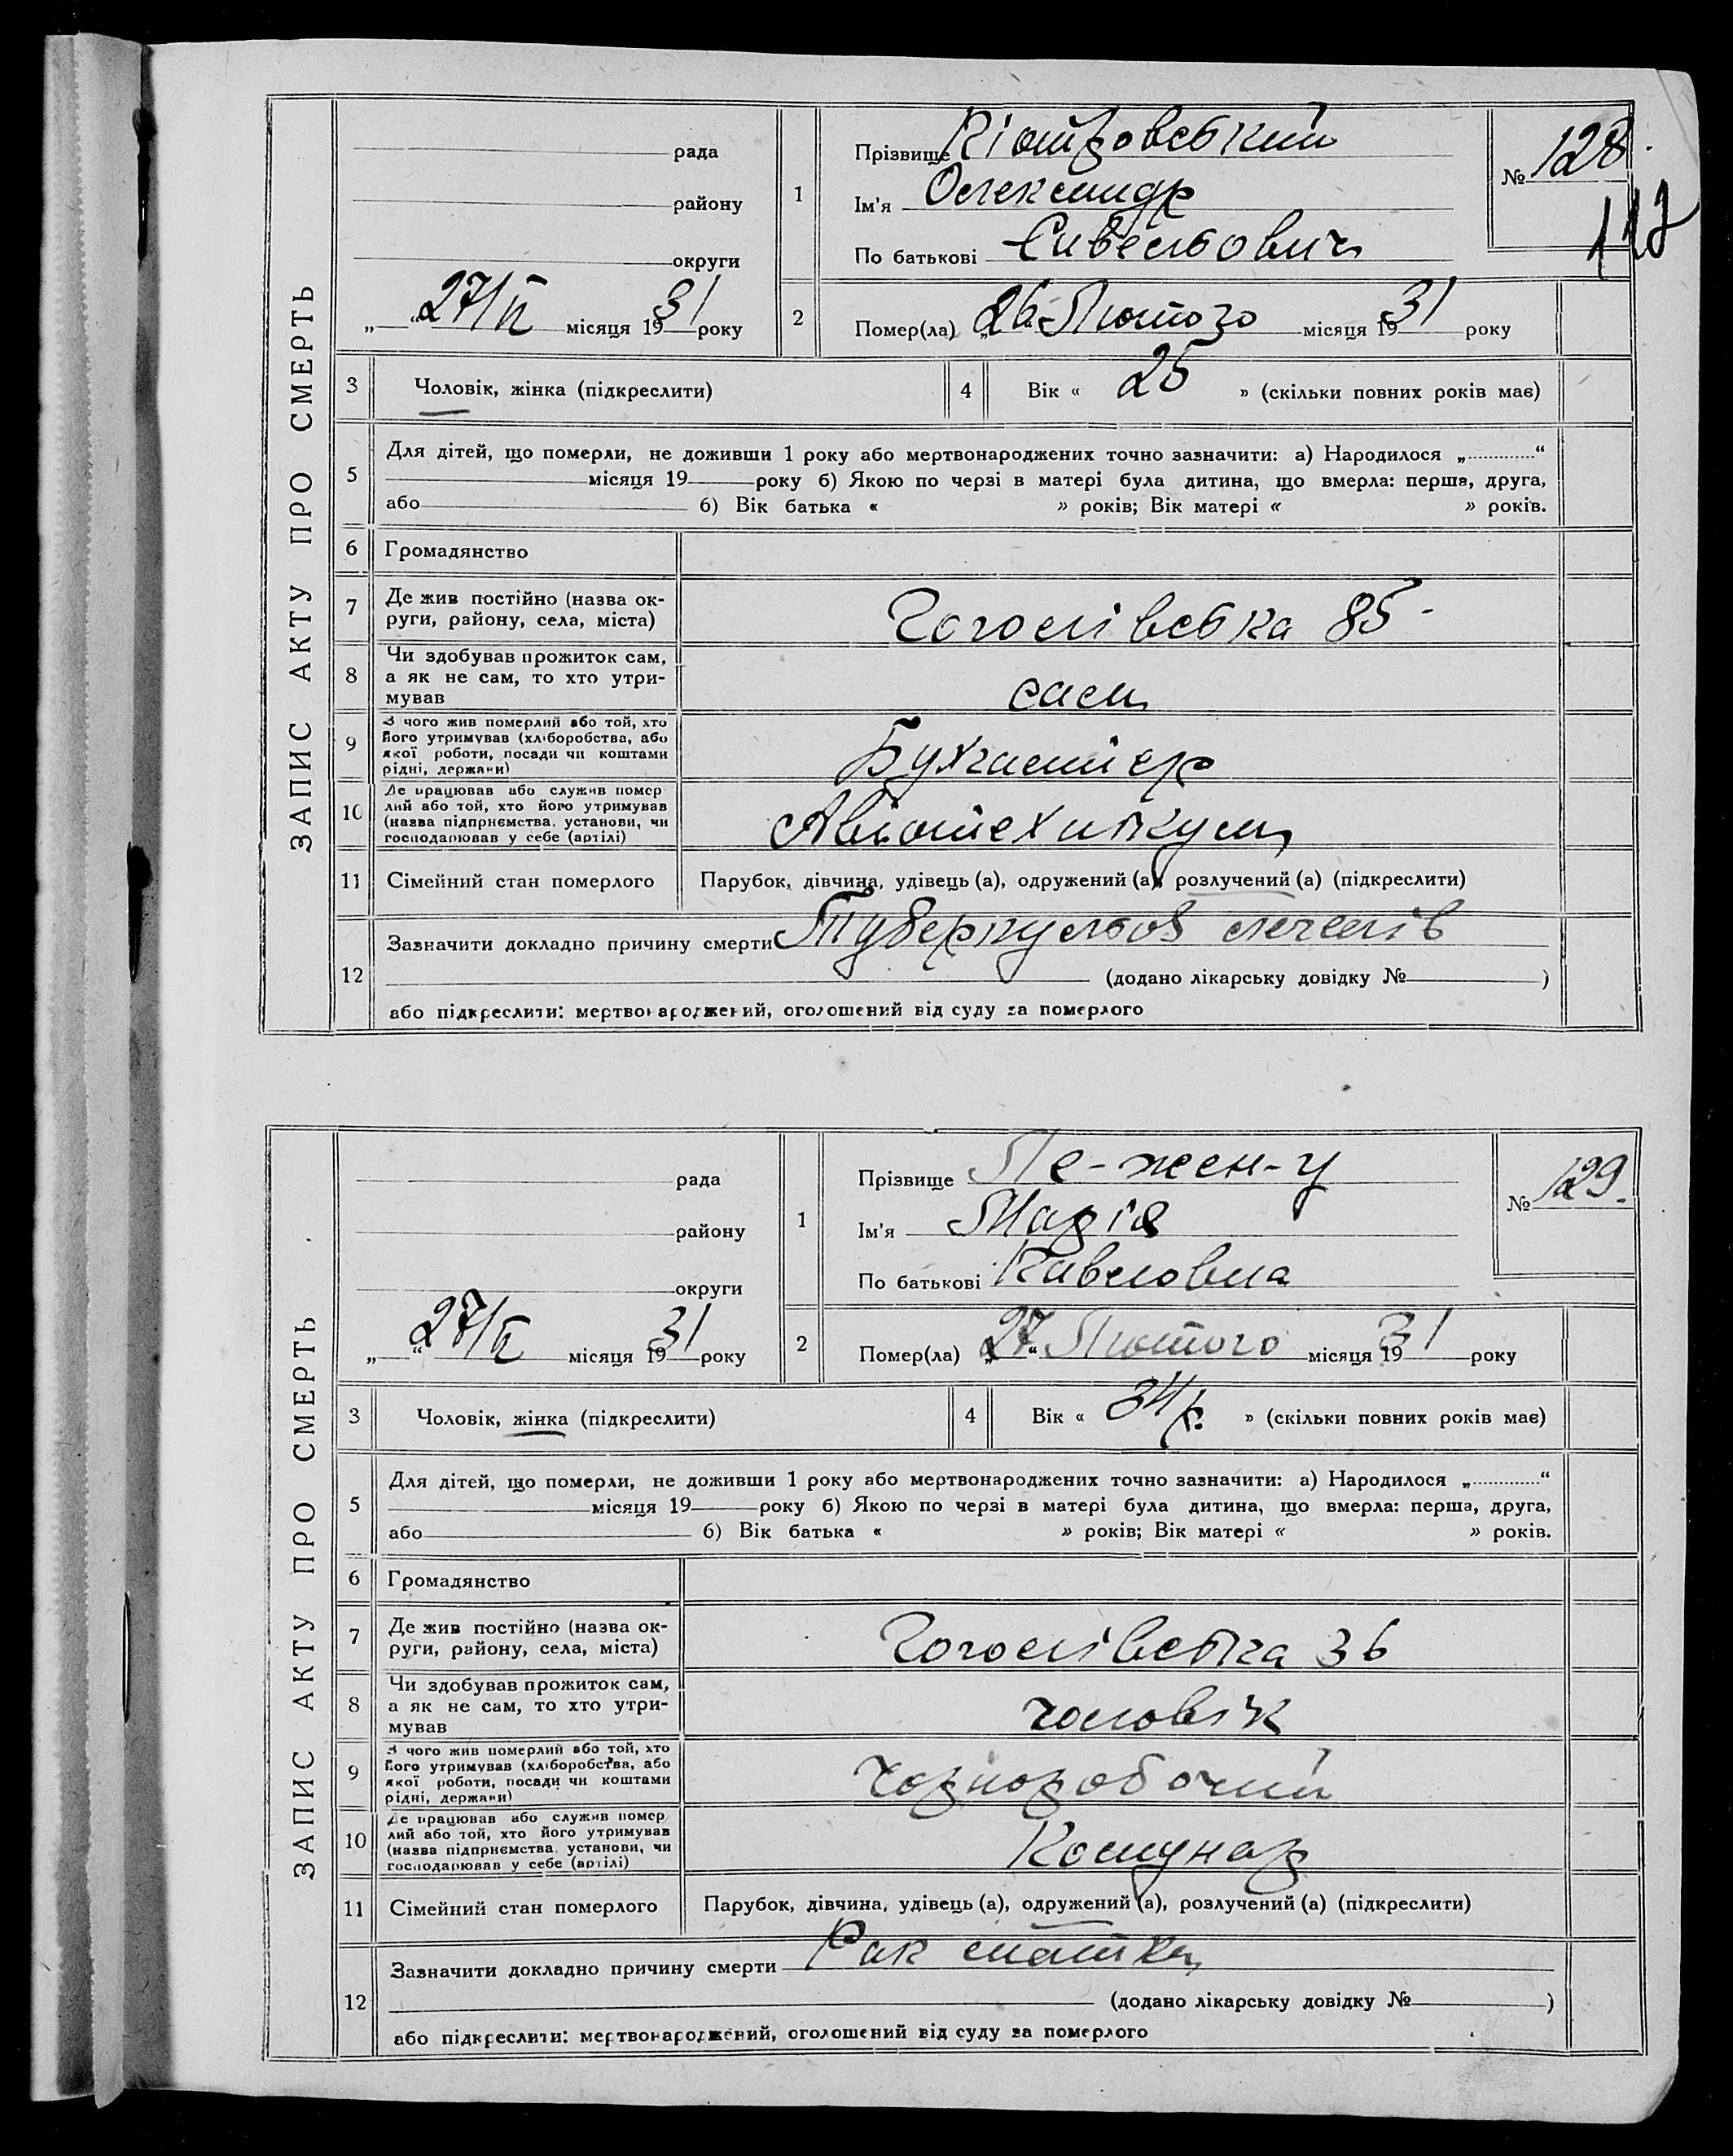 ЗАПИС АКТУ ПРО СМЕРТЬ
рада
району
округи
„ “ 27/ІІ місяця 1931 року
1
Прізвище Піотровський
Ім'я Олександр
По батькові
№ 128
2
Помер(ла) „26“ Лютого місяця 1931 року
3
Чоловік, жінка (підкреслити)
4
Вік « 25 » (скільки повних років має)
5
Для дітей, що померли, не доживши 1 року або мертвонароджених точно зазначити: а) Народилося „ “
місяця 19 року б) Якою по черзі в матері була дитина, що вмерла: перша, друга,
або б) Вік батька « » років; Вік матері « » років.
6
Громадянство
7
Де жив постійно (назва ок-
руги, району, села, міста)
Гоголівська 85
8
Чи здобував прожиток сам,
а як не сам, то хто утри-
мував
сам
9
З чого жив померлий або той, хто
його утримував (хліборобства, або
якої роботи, посади чи коштами
рідні, держави)
Бухгалтер
10
Де працював або служив помер
лий або той, хто його утримував
(назва підприємства, установи, чи
господарював у себе (артілі)
Авіотехникум
11
Сімейний стан померлого
Парубок, дівчина, удівець (а), одружений (а), розлучений (а) (підкреслити)
12
Зазначити докладно причину смерти Туберкульоз легенів
(додано лікарську довідку № )
або підкреслити: мертвонароджений, оголошений від суду за померлого
ЗАПИС АКТУ ПРО СМЕРТЬ
рада
району
округи
„ “ 27/ІІ місяця 1931 року
1
Прізвище Пе-жен-у
Ім'я Марія
По батькові Павловна
№ 129.
2
Помер(ла) „27“ Лютого місяця 1931 року
3
Чоловік, жінка (підкреслити)
4
Вік « 34 р. » (скільки повних років має)
5
Для дітей, що померли, не доживши 1 року або мертвонароджених точно зазначити: а) Народилося „ “
місяця 19 року б) Якою по черзі в матері була дитина, що вмерла: перша, друга,
або б) Вік батька « » років; Вік матері « » років.
6
Громадянство
7
Де жив постійно (назва ок-
руги, району, села, міста)
Гоголівська 36
8
Чи здобував прожиток сам,
а як не сам, то хто утри-
мував
чоловік
9
З чого жив померлий або той, хто
його утримував (хліборобства, або
якої роботи, посади чи коштами
рідні, держави)
Чорноробочий
10
Де працював або служив помер
лий або той, хто його утримував
(назва підприємства, установи, чи
господарював у себе (артілі)
Комунар
11
Сімейний стан померлого
Парубок, дівчина, удівець (а), одружений (а), розлучений (а) (підкреслити)
12
Зазначити докладно причину смерти Рак матки
(додано лікарську довідку № )
або підкреслити: мертвонароджений, оголошений від суду за померлого